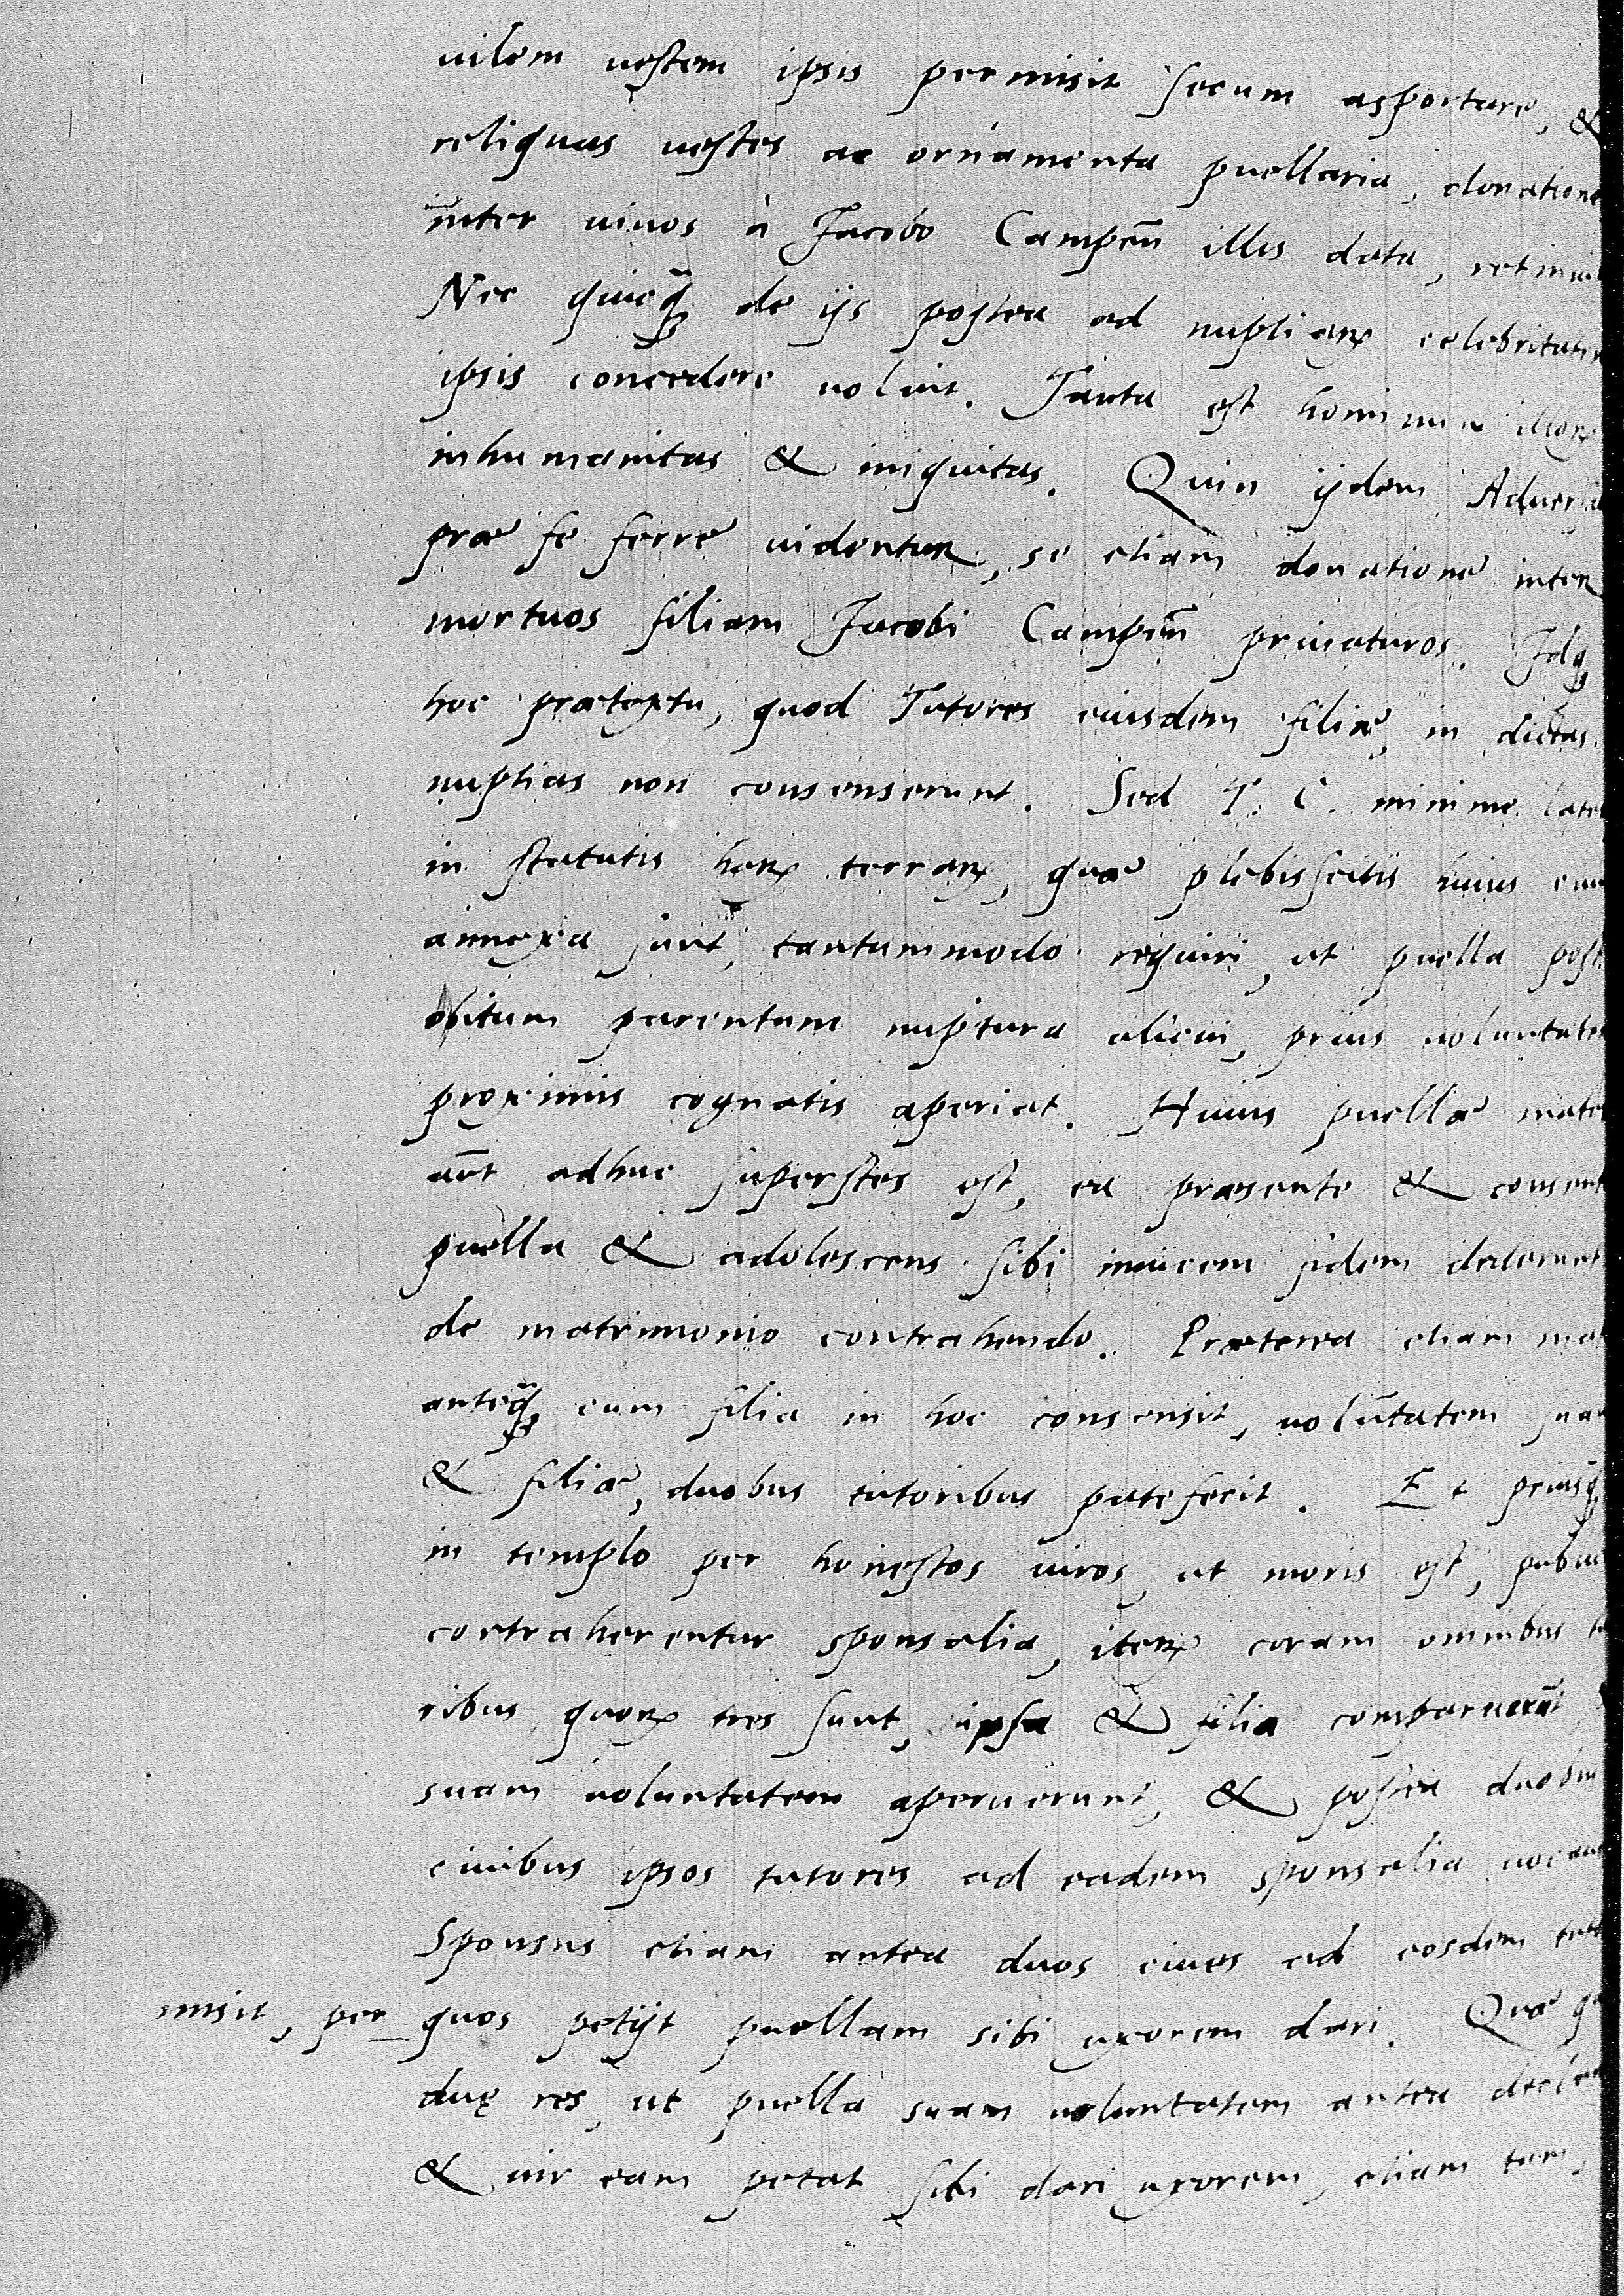 uilem uestem ipsis permisit secum asportare, &
reliquas uestes ac ornamenta puellaria, donatione
inter uiuos à Jacobo Campeñ illis data, retinuit
Nec quicq̃ de ijs postea ad nuptiarꝝ celebritatem
ipsis concedere uoluit. Tanta est hominum illorꝝ
inhumanitas & iniquitas. Quin ijdem Aduersa
præ se ferre uidentur, se etiam donatione inter
mortuos filiam Jacobi Campeñ priuaturos. Idqꝫ
hoc prætextu, quod Tutores eiusdem filiæ, in dictas
nuptias non consenserunt. Sed T. C. minime latet
in statutis harꝝ terrarꝝ, quæ plebisscitis huius
annexa sunt, tantummodo requiri, ut puella post
obitum parentum nuptura alicui, prius uoluntatem
proximis cognatis aperiat. Huius puellæ mater
aūt adhuc superstes est, ea præsente & consent
puella & adolescens sibi inuicem fidem dederunt
de matrimonio contrahendo. Præterea etiam mat
anteq̃ cum filia in hoc consensit, uolūtatem suam
& filiæ, duobus tutoribus patefecit. Et priusq̃
in templo per honestos uiros, ut moris est, public
contraherentur sponsalia, iterꝝ coram omnibus tu
ribus, quorꝝ tres sunt, ipsa & filia comparuerūt,
suam uoluntatem aperuerunt, & postea duobus
ciuibus ipsos tutores ad eadem sponsalia uocaue
Sponsus etiam antea duos ciues ad eosdem tuto
misit, per quos petijt puellam sibi uxorem dari. Quæ
duę res, ut puella suam uoluntatem antea declar
& uir eam petat sibi dari uxorem, etiam tum,